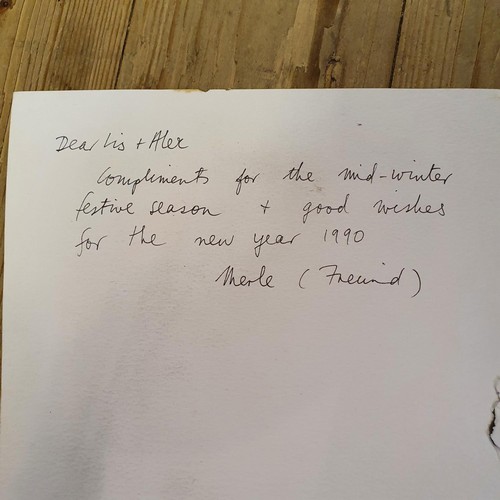 Dear Lis + Alex
Compliments for the mid-winter
festive season + good wishes
for the new year 1990
Merle (Freund)